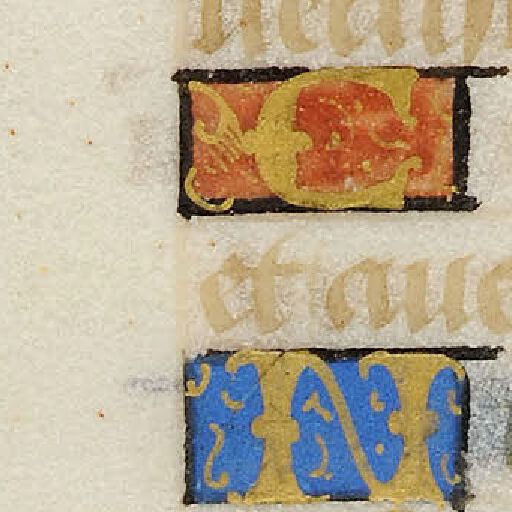 E
et aue
N